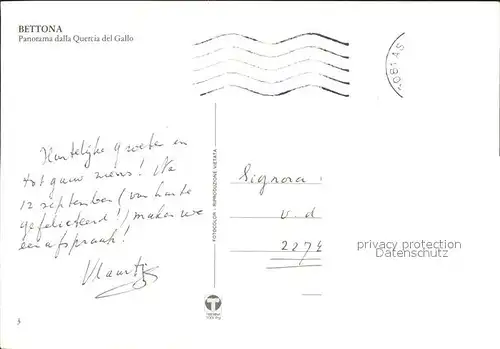 BETTONA
Panorama dalla Quercia del Gallo
Hartelijke groeten en
tot gauw ziens! Na
12 september (van harte
gefeliciteerd!) maken we
een afspraak!
FOTOCOLOR - RIPRODUZIONE VIETATA
Signora
v. d
2274
privacy protection
Datenschutz
T